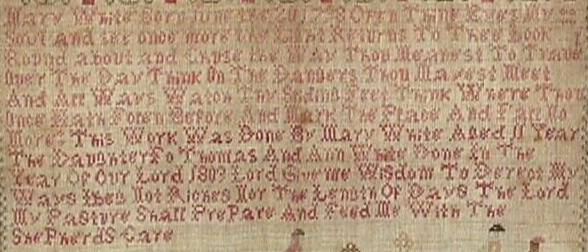 Mary White Born June the 20 1798 Open Thine Eyes My
Soul And see once more the Light Returns To Thee Look
Round about and Chuse the Way Thou Meanest To Travel
Over The Day Think On The Dangers Thou Mayest Meet
And All Ways Watch Thy Sliding Feet Think Where Thou
Once Hath Before And Mark The Place And Fall No
More This Work Was Done By Mary White Aged 11 Year
The Daughter Fo Thomas And Ann White Done In The
Year Of Our Lord 1809 Lord Give me Wisdom To Derect My
Ways I beg Not Riches Nor The Length Of Days The Lord
My Pasture Shall PrePare And Feed Me With The
ShePherdS Care